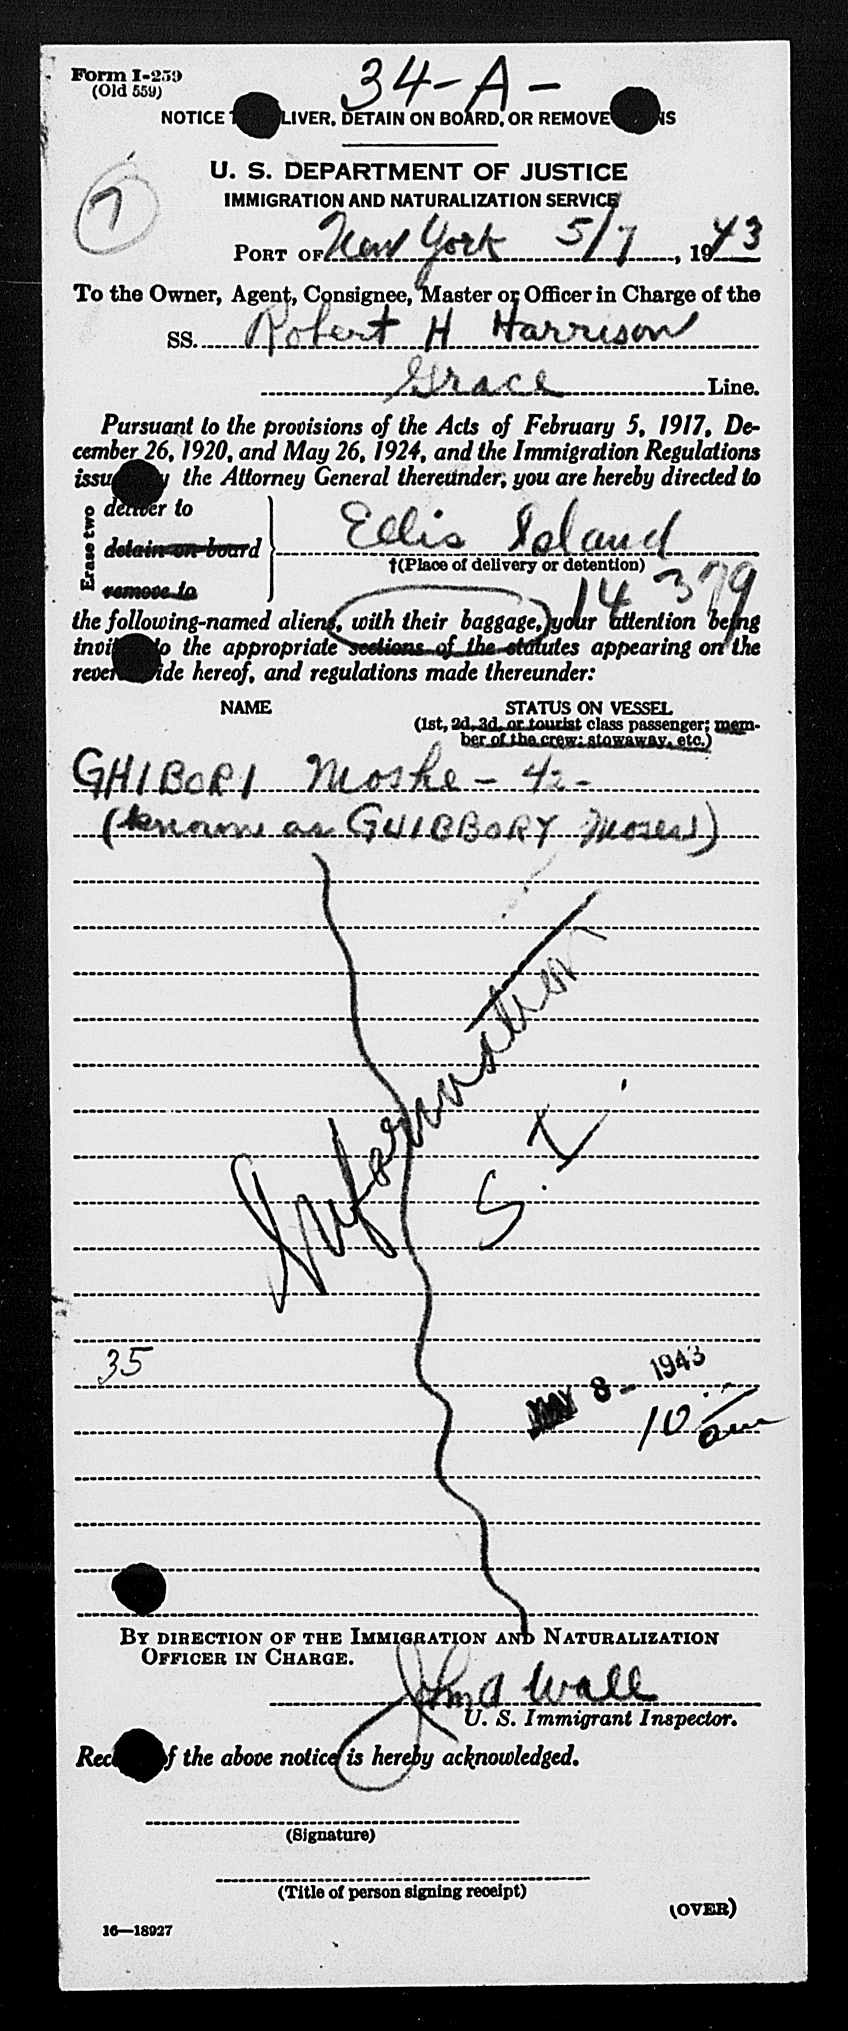 Form I-259
(Old 559)
34-A-
NOTICE LIVER, DETAIN ON BOARD, OR REMOVE NS
U. S. DEPARTMENT OF JUSTICE
IMMIGRATION AND NATURALIZATION SERVICE
7
PORT OF New York 5/7, 1943
To the Owner, Agent, Consignee, Master or Officer in Charge of the
SS. Robert H Harrison
Grace Line.
Pursuant to the provisions of the Acts of February 5, 1917, De-
cember 26, 1920, and May 26, 1924, and the Immigration Regulations
issu y the Attorney General thereunder, you are hereby directed to
Erase two
deliver to
detain on board
remove to
Ellis Island
†(Place of delivery or detention)
14379
the following-named aliens, with their baggage, your attention being
invi o the appropriate sections of the statutes appearing on the
rever ide hereof, and regulations made thereunder:
NAME STATUS ON VESSEL
(1st, 2d, 3d, or tourist class passenger; mem-
ber of the crew; stowaway, etc.)
GHIBORI Moshe - 42 -
(known as GHIBBORY Moses)
Information
S. I.
35
MAY 8 - 1943
10 am
BY DIRECTION OF THE IMMIGRATION AND NATURALIZATION
OFFICER IN CHARGE.
John A Wall
U. S. Immigrant Inspector.
Rec f the above notice is hereby acknowledged.
(Signature)
(Title of person signing receipt)
(OVER)
16—18927